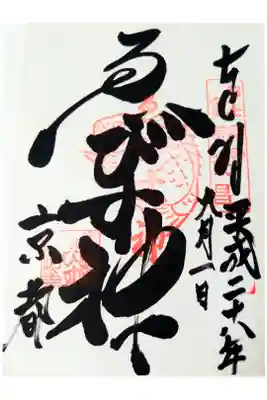 奉拝 平成二十八年
九月一日
ゑびす神社
京都